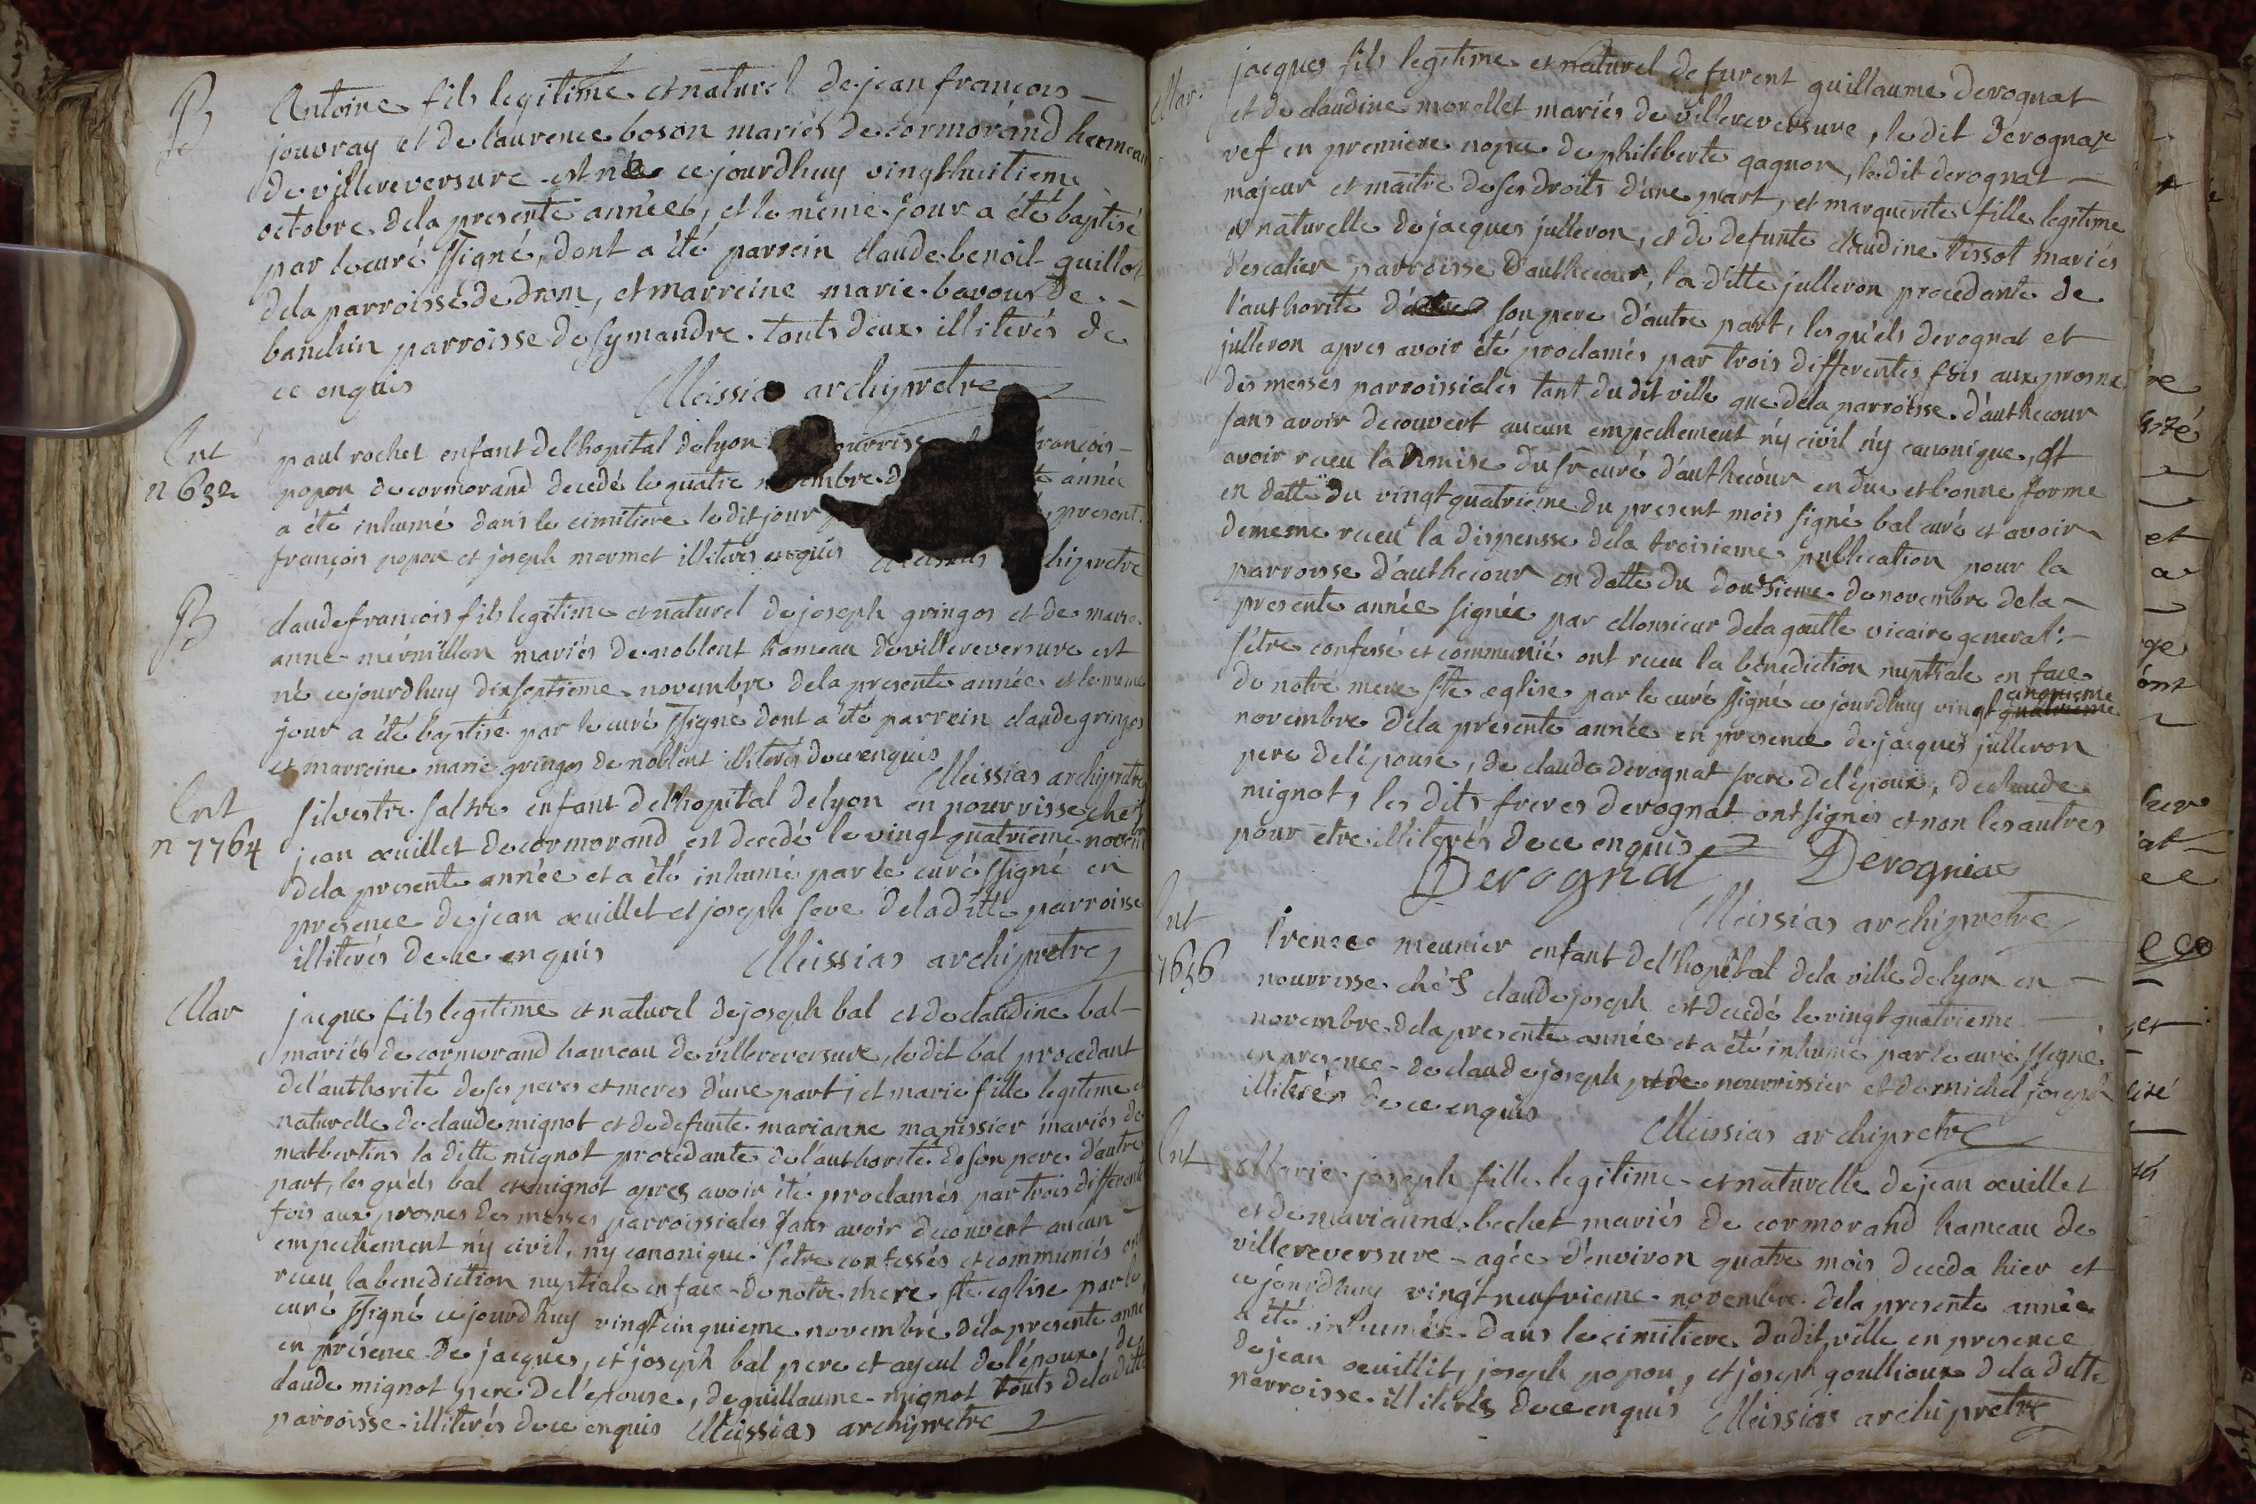 B
Antoine fils legitime et naturel de jean francois
jouvray et de laurence boson mariés de cormorand hameau
de villereversure est né ce jourdhuy vingthuitieme
octobre dela presente année, et le même jour a été baptisé
par le curé ssigné, dont a été parrein claude benoit guillot
dela parroisse de drom, et marreine marie bavoux de
banchin parroisse de symandre. touts deux illiterés de
ce enquis Meissias archipretre
Ent
n 632
paul rochet enfant del'hopital delyon françois
popon de cormorand decedé le quatre novembre de année
a été inhumé dans le cimitiere le dit jour present
françois popon et joseph mermet illiterés enquis Meissias archipretre
B
claude francois fils legitime et naturel de joseph gringos et de marie
anne mermillon mariés de noblent hameau de villereversure est
né ce jourdhuy dixseptieme novembre dela presente année et le meme
jour a été baptisé par le curé ssigné dont a été parrein claude gringos
et marreine marie gringos de noblent illiterés de ce enquis
Meissias archipretre
Ent
n 7764
silvestre saltre enfant del'hopital delyon en nourrisse chez
jean œuillet de cormorand est decedé le vingt quatrieme novembre
dela presente année et a été inhumé par le curé ssigné en
presence de jean œuillet et joseph seve dela ditte parroisse
illiterés de ce enquis Meissias archipretre
Mar
jacque fils legitime et naturel de joseph bal et de claudine bal
mariés de cormorand hameau de villereversure, le dit bal procedant
de l'authorité de ses peres et meres d'une part, et marie fille legitime et
naturelle de claude mignot et de defunte marianne manissier mariés de
matbertins la ditte mignot procedante de l'authorité de son pere d'autre
part, les quels bal et mignot apres avoir été proclamés par trois differente
fois aux prosnes des messes parroissiales sans avoir decouvert aucun
empechement n'y civil, n'y canonique. s'etre confessés et communiés ont
receu la benediction nuptiale en face de notre mere ste eglise par le
curé ssigné ce jourdhuy vingt cinquieme novembre dela presente année
en présence de jacques, et joseph bal pere et ayeul de l'époux, de
claude mignot pere de l'épouse, de guillaume mignot touts dela ditte
parroisse illiterés de ce enquis Meissias archipretre
Mar
jacques fils legitime et naturel de furent guillaume derognat
et de claudine morellet mariés de villereversure, le dit derognat
vef en premiere nopce de philiberte gagnon, le dit derognat
majeur et maitre de ses droits d'une part, et marguerite fille legitime
et naturelle de jacques julleron, et de defunte claudine tissot mariés
d'escalier parroisse d'authecour, la ditte julleron procedante de
l'authorité d' son pere d'autre part, les quels derognat et
julleron apres avoir été proclamés par trois differentes fois aux prosne
des messes parroissiales tant du dit ville que dela parroisse d'authecour
sans avoir decouvert aucun empechement n'y civil n'y canonique, et
avoir receu la remise du sr curé d'authecour en due et bonne forme
en datte du vingt quatrieme du present mois signé bal curé et avoir
dememe receu la dispensse dela troisieme publication pour la
parroisse d'authecour en datte du douzsieme de novembre dela
presente année signée par Monsieur delagoutte vicaire general.
s'etre confessé et communié ont receu la bénediction nuptiale en face
de notre mere ste eglise par le curé ssigné ce jourdhuy vingt quatrieme cinquieme
novembre dela presente année en presence de jacques julleron
pere del'épouse, de claude derognat frere del'époux, de claude
mignot, les dits freres derognat ont signés et non les autres
pour etre illiterés de ce enquis
Derognat Derogniat
Meissias archipretre
Ent
7636
Irenee meunier enfant del'hopital dela ville delyon en
nourrisse chéz claude joseph est decedé le vingt quatrieme
novembre dela presente année et a été inhumé par le curé ssigné
en presence de claude joseph pere nourrissier et de michel joseph
illiterés de ce enquis
Meissias archipretre
Ent
Marie joseph fille legitime et naturelle de jean œuillet
et de marianne bechet mariés de cormorand hameau de
villereversure agée d'environ quatre mois deceda hier et
ce jourdhuy vingt neufvieme novembre dela presente année
a été inhumée dans le cimitiere dudit ville en presence
de jean œuillet, joseph popon, et joseph goullioux dela ditte
parroisse illiterés de ce enquis Meissias archipretre